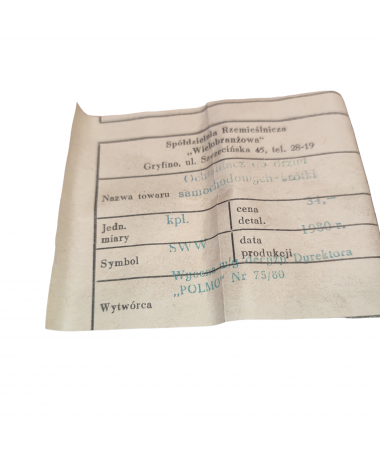 Spółdzielnia Rzemieślnicza
„Wielobranżowa"
Gryfino, ul. Szczecińska 45, tel. 28-19
Nazwa towaru
samochodowych
Jedn.
miary
kpl.
cena
detal.
34,-
Symbol
SWW
data
produkcji
1980 r.
Wycena Dyrektora
„POLMO" Nr 75/80
Wytwórca